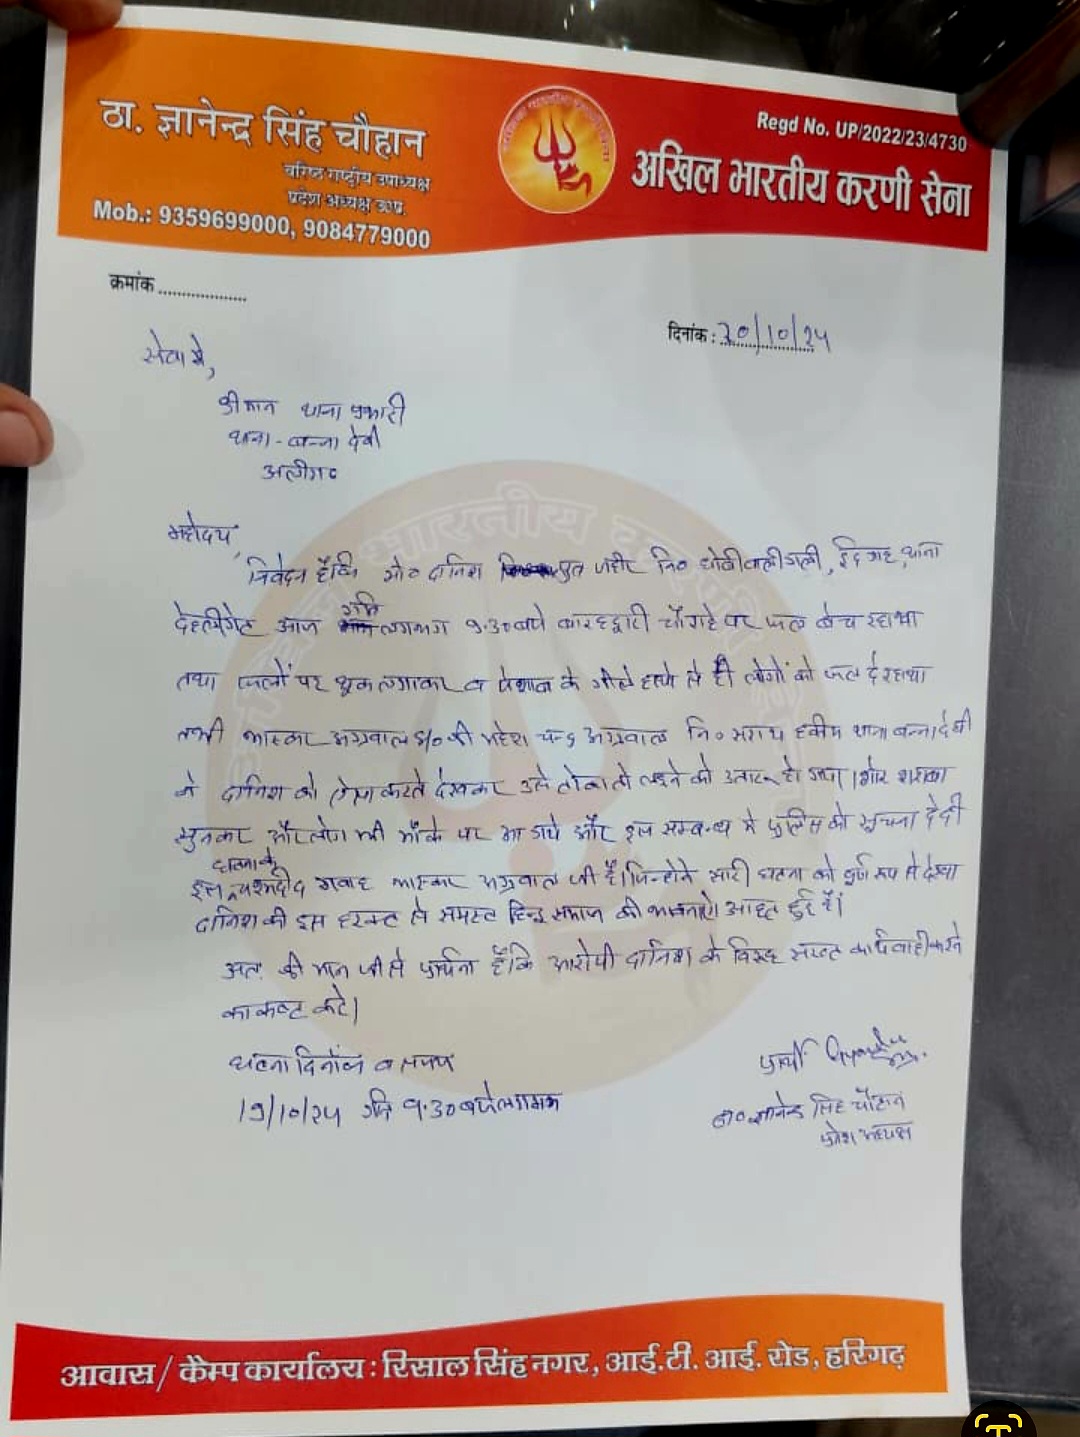 ठा. ज्ञानेन्द्र सिंह चौहान
वरिष्ठ राष्ट्रीय उपाध्यक्ष
प्रदेश अध्यक्ष उ.प्र.
Mob.: 9359699000, 9084779000
Regd No. UP/2022/23/4730
अखिल भारतीय करणी सेना
क्रमांक ....................
दिनांक : 20/10/24
सेवा में,
श्रीमान थाना प्रभारी
थाना - बन्ना देवी
अलीगढ़
महोदय,
निवेदन है कि मो० दानिश पुत्र जहीर नि० धोबी वाली गली, ईदगाह, थाना
देहलीगेट आज रात्रि लगभग 9:30 बजे बारहद्वारी चौराहे पर फल बेच रहा था
तथा फलों पर थूक लगाकर व पेशाब के गीले हाथो से ही लोगों को फल दे रहा था
तभी भास्कर अग्रवाल S/o श्री महेश चन्द्र अग्रवाल नि० सराय हकीम थाना बन्नादेवी
ने दानिश को ऐसा करते देखकर उसे टोका तो लड़ने को उतारू हो गया। शोर शराबा
सुनकर और लोग भी मौके पर आ गये और इस सम्बन्ध मे पुलिस को सूचना दे दी
इस घटना के चश्मदीद गवाह भास्कर अग्रवाल जी है। जिन्होने सारी घटना को पूर्ण रूप से देखा
दानिश की इस हरकत से समस्त हिन्दू समाज की भावनाऐं आहत हुई हैं।
अतः श्री मान जी से प्रार्थना है कि आरोपी दानिश के विरूद्ध सख्त कार्यवाही करने
का कष्ट करे।
घटना दिनाँक व समय
19/10/24 रात्रि 9:30 बजे लगभग
प्रार्थी
ठा० ज्ञानेन्द्र सिंह चौहान
प्रदेश अध्यक्ष
आवास / कैम्प कार्यालय : रिसाल सिंह नगर, आई.टी. आई. रोड, हरिगढ़